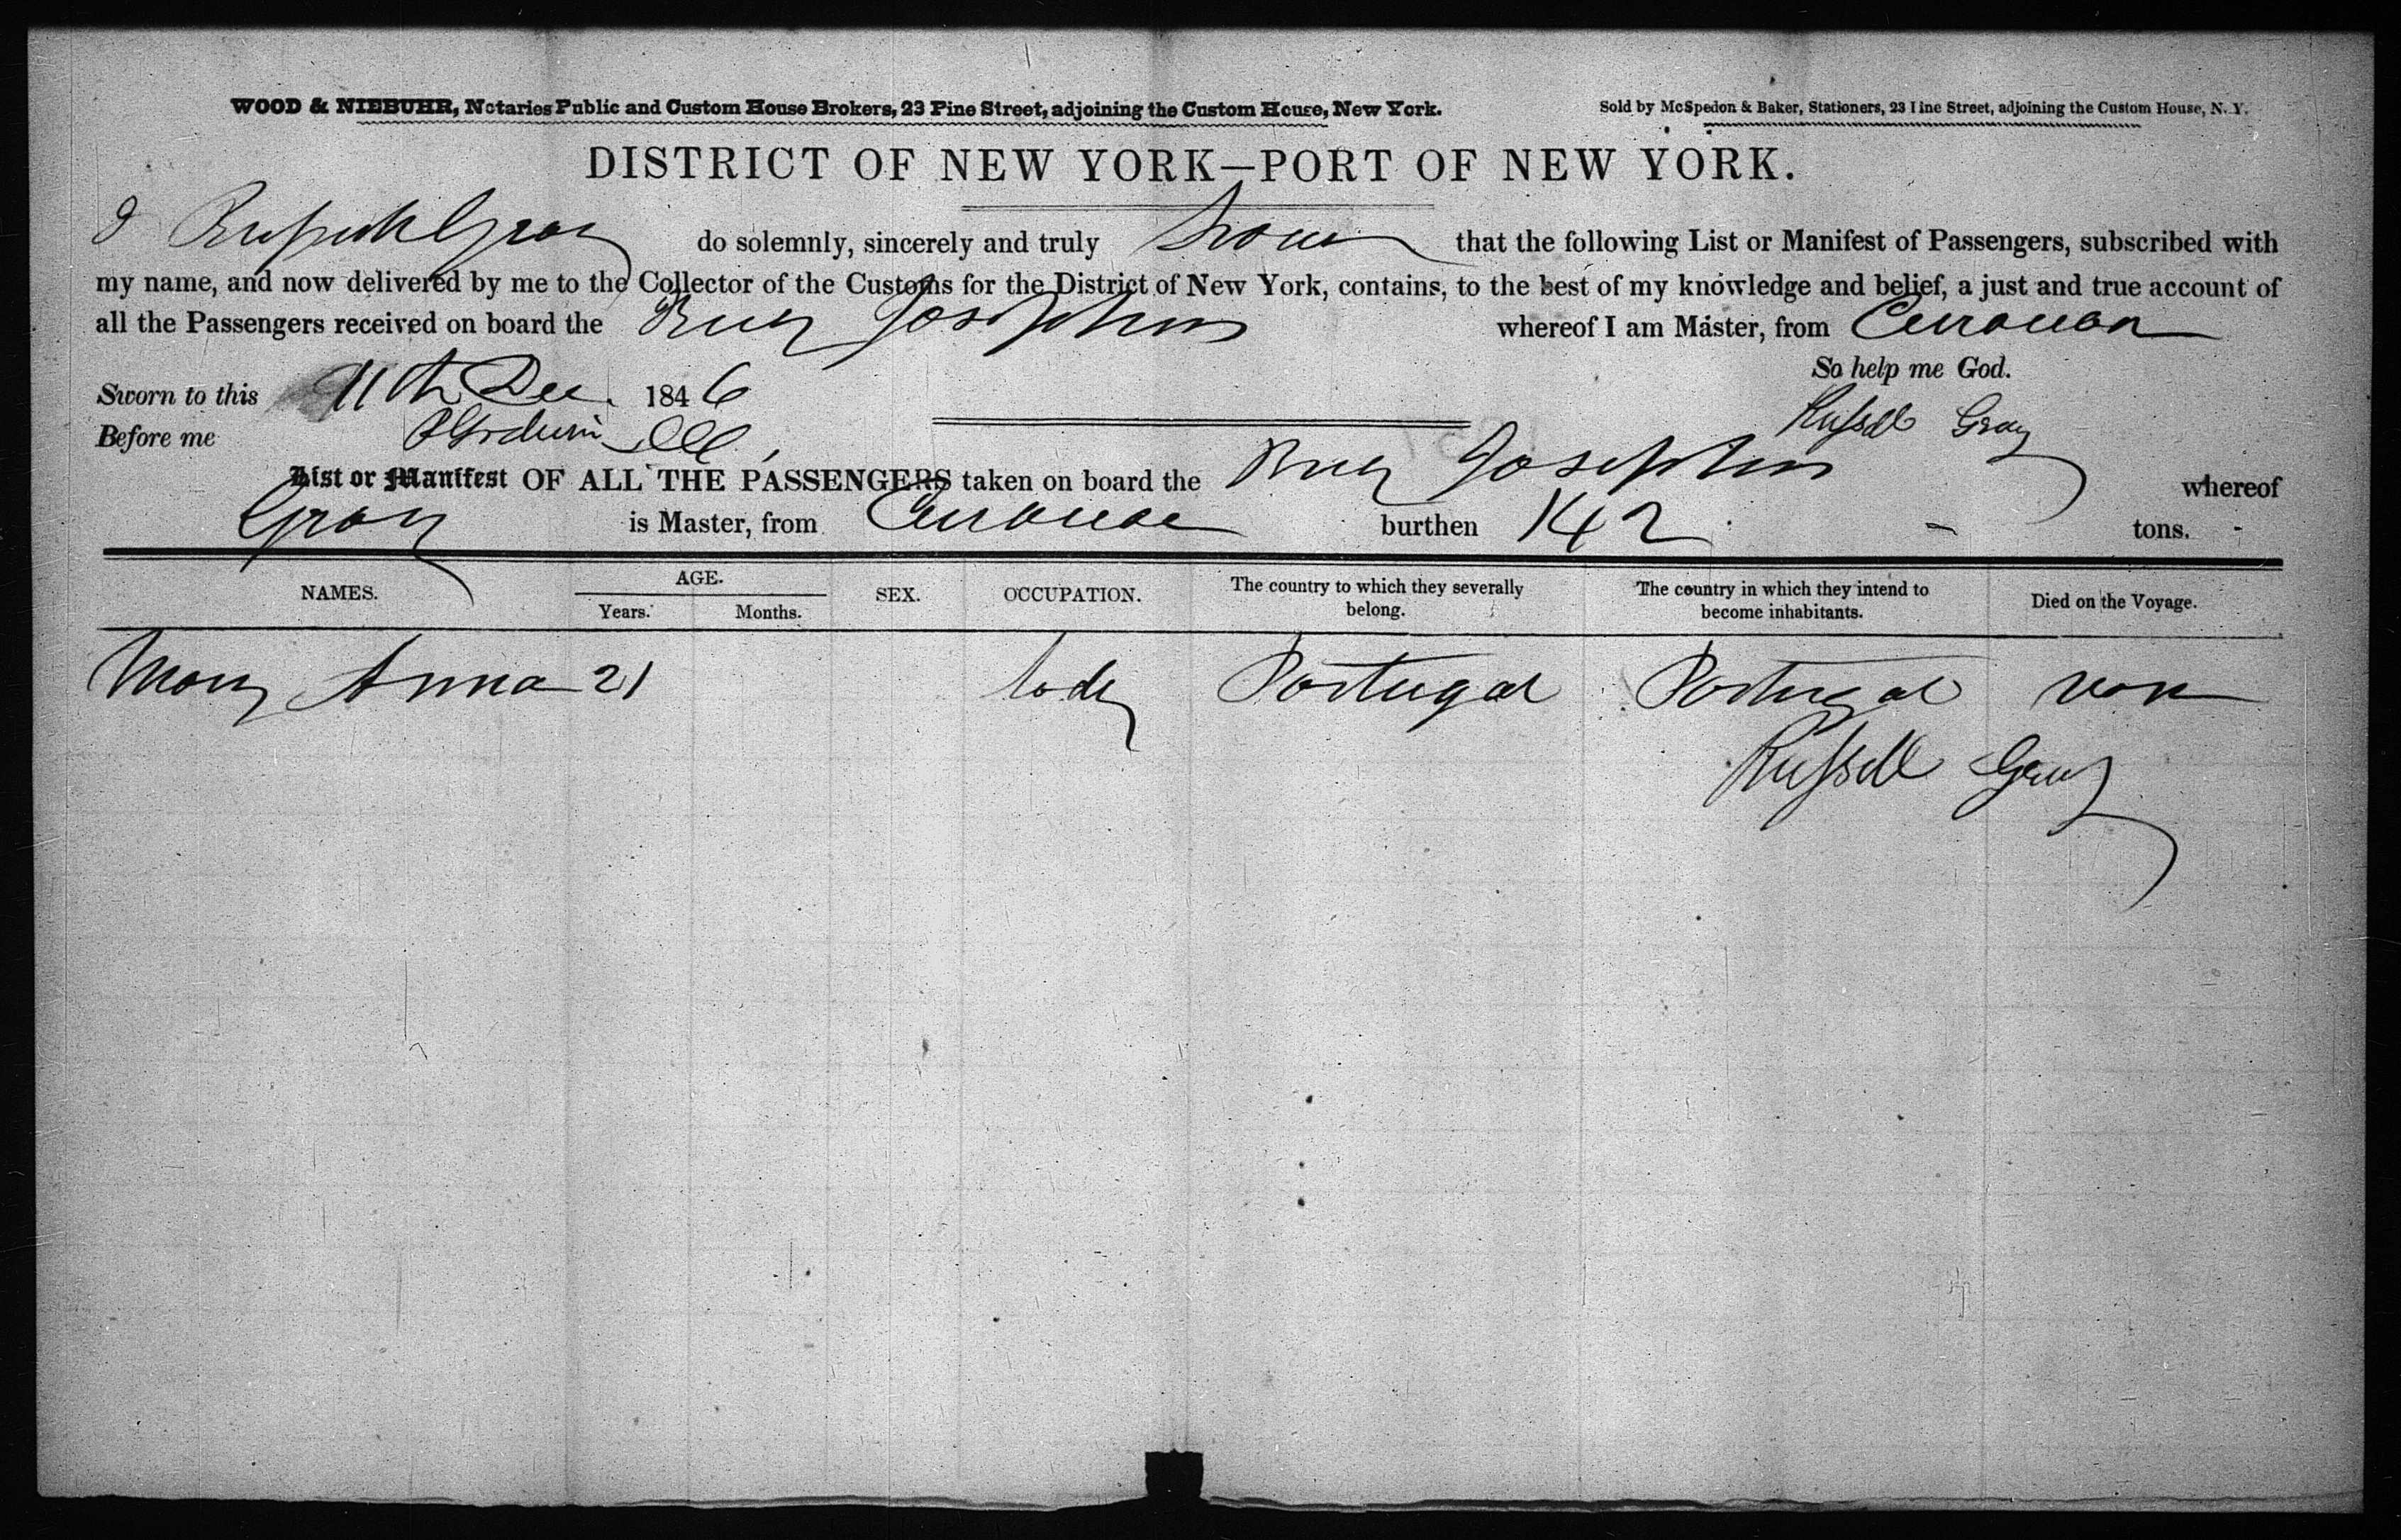 WOOD & NIEBUHR, Notaries Public and Custom House Brokers, 23 Pine Street, adjoining the Custom House, New York. Sold by McSpedon & Baker, Stationers, 23 Pine Street, adjoining the Custom House, N. Y.
DISTRICT OF NEW YORK—PORT OF NEW YORK.
I Russell Gray do solemnly, sincerely and truly swear that the following List or Manifest of Passengers, subscribed with
my name, and now delivered by me to the Collector of the Customs for the District of New York, contains, to the best of my knowledge and belief, a just and true account of
all the Passengers received on board the Brig Josephine whereof I am Master, from Curacoa
So help me God.
Sworn to this 11th Dec. 1846 Russell Gray
Before me
List or Manifest OF ALL THE PASSENGERS taken on board the Brig Josephine whereof
Gray is Master, from Curacoa burthen 142 tons.
NAMES. AGE. Years. Months. SEX. OCCUPATION. The country to which they severally belong. The country in which they intend to become inhabitants. Died on the Voyage.
Mary Anna 21 lady Portugal Portugal non
Russell Gray